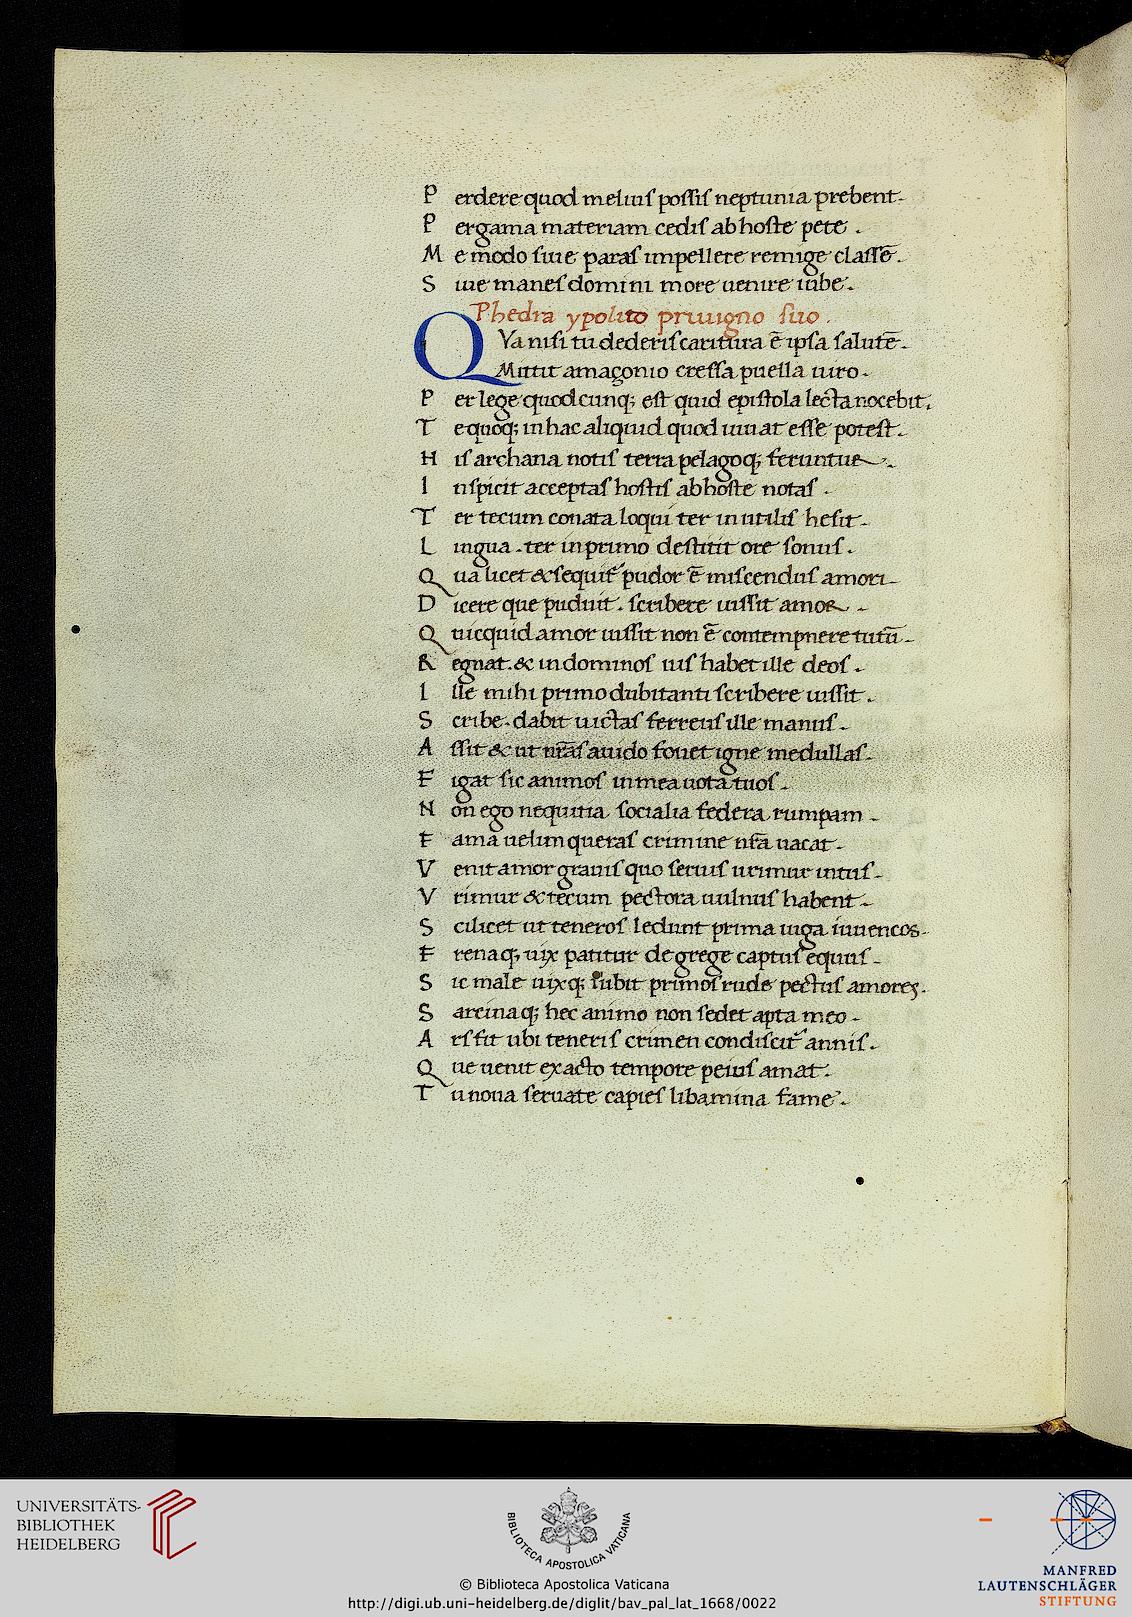 Perdere quod melius possis neptunia prebent.
Pergama materiam cedis ab hoste pete.
Me modo siue paras impellere remige classē.
Siue manes domini more uenire iube.
Phedra ypolito priuigno suo.
QVa nisi tu dederis caritura ē ipsa salutē.
Mittit amaçonio cressa puella uiro.
Perlege quodcunq; est quid epistola lecta nocebit.
Te quoq; in hac aliquid quod iuuat esse potest.
His archana notis terra pelagoq; feruntur.
Inspicit acceptas hostis ab hoste notas.
Ter tecum conata loqui ter inutilis hesit.
Lingua. ter in primo destitit ore sonus.
Qua licet & sequit᷑ pudor ē miscendus amori.
Dicere que puduit. scribere iussit amor.
Quicquid amor iussit non ē contempnere tutū.
Regnat. & in dominos ius habet ille deos.
Ille mihi primo dubitanti scribere iussit.
Scribe. dabit uictas ferreus ille manus.
Assit & ut nr̄as auido fouet igne medullas.
Figat sic animos in mea uota tuos.
Non ego nequitia socialia federa rumpam.
Fama uelim queras crimine nr̄a uacat.
Venit amor grauis quo serius urimur intus.
Vrimur & tecum pectora uulnus habent.
Scilicet ut teneros ledunt prima iuga iuuencos.
Frenaq; uix patitur de grege captus equus.
Sic male uixq; subit primos rude pectus amores.
Sarcinaq; hec animo non sedet apta meo.
Ars fit ubi teneris crimen condiscit᷑ annis.
Que uenit exacto tempore peius amat.
Tu noua seruate capies libamina fame.
UNIVERSITÄTS-
BIBLIOTHEK
HEIDELBERG
BIBLIOTECA APOSTOLICA VATICANA
MANFRED
LAUTENSCHLÄGER
STIFTUNG
© Biblioteca Apostolica Vaticana
http://digi.ub.uni-heidelberg.de/diglit/bav_pal_lat_1668/0022